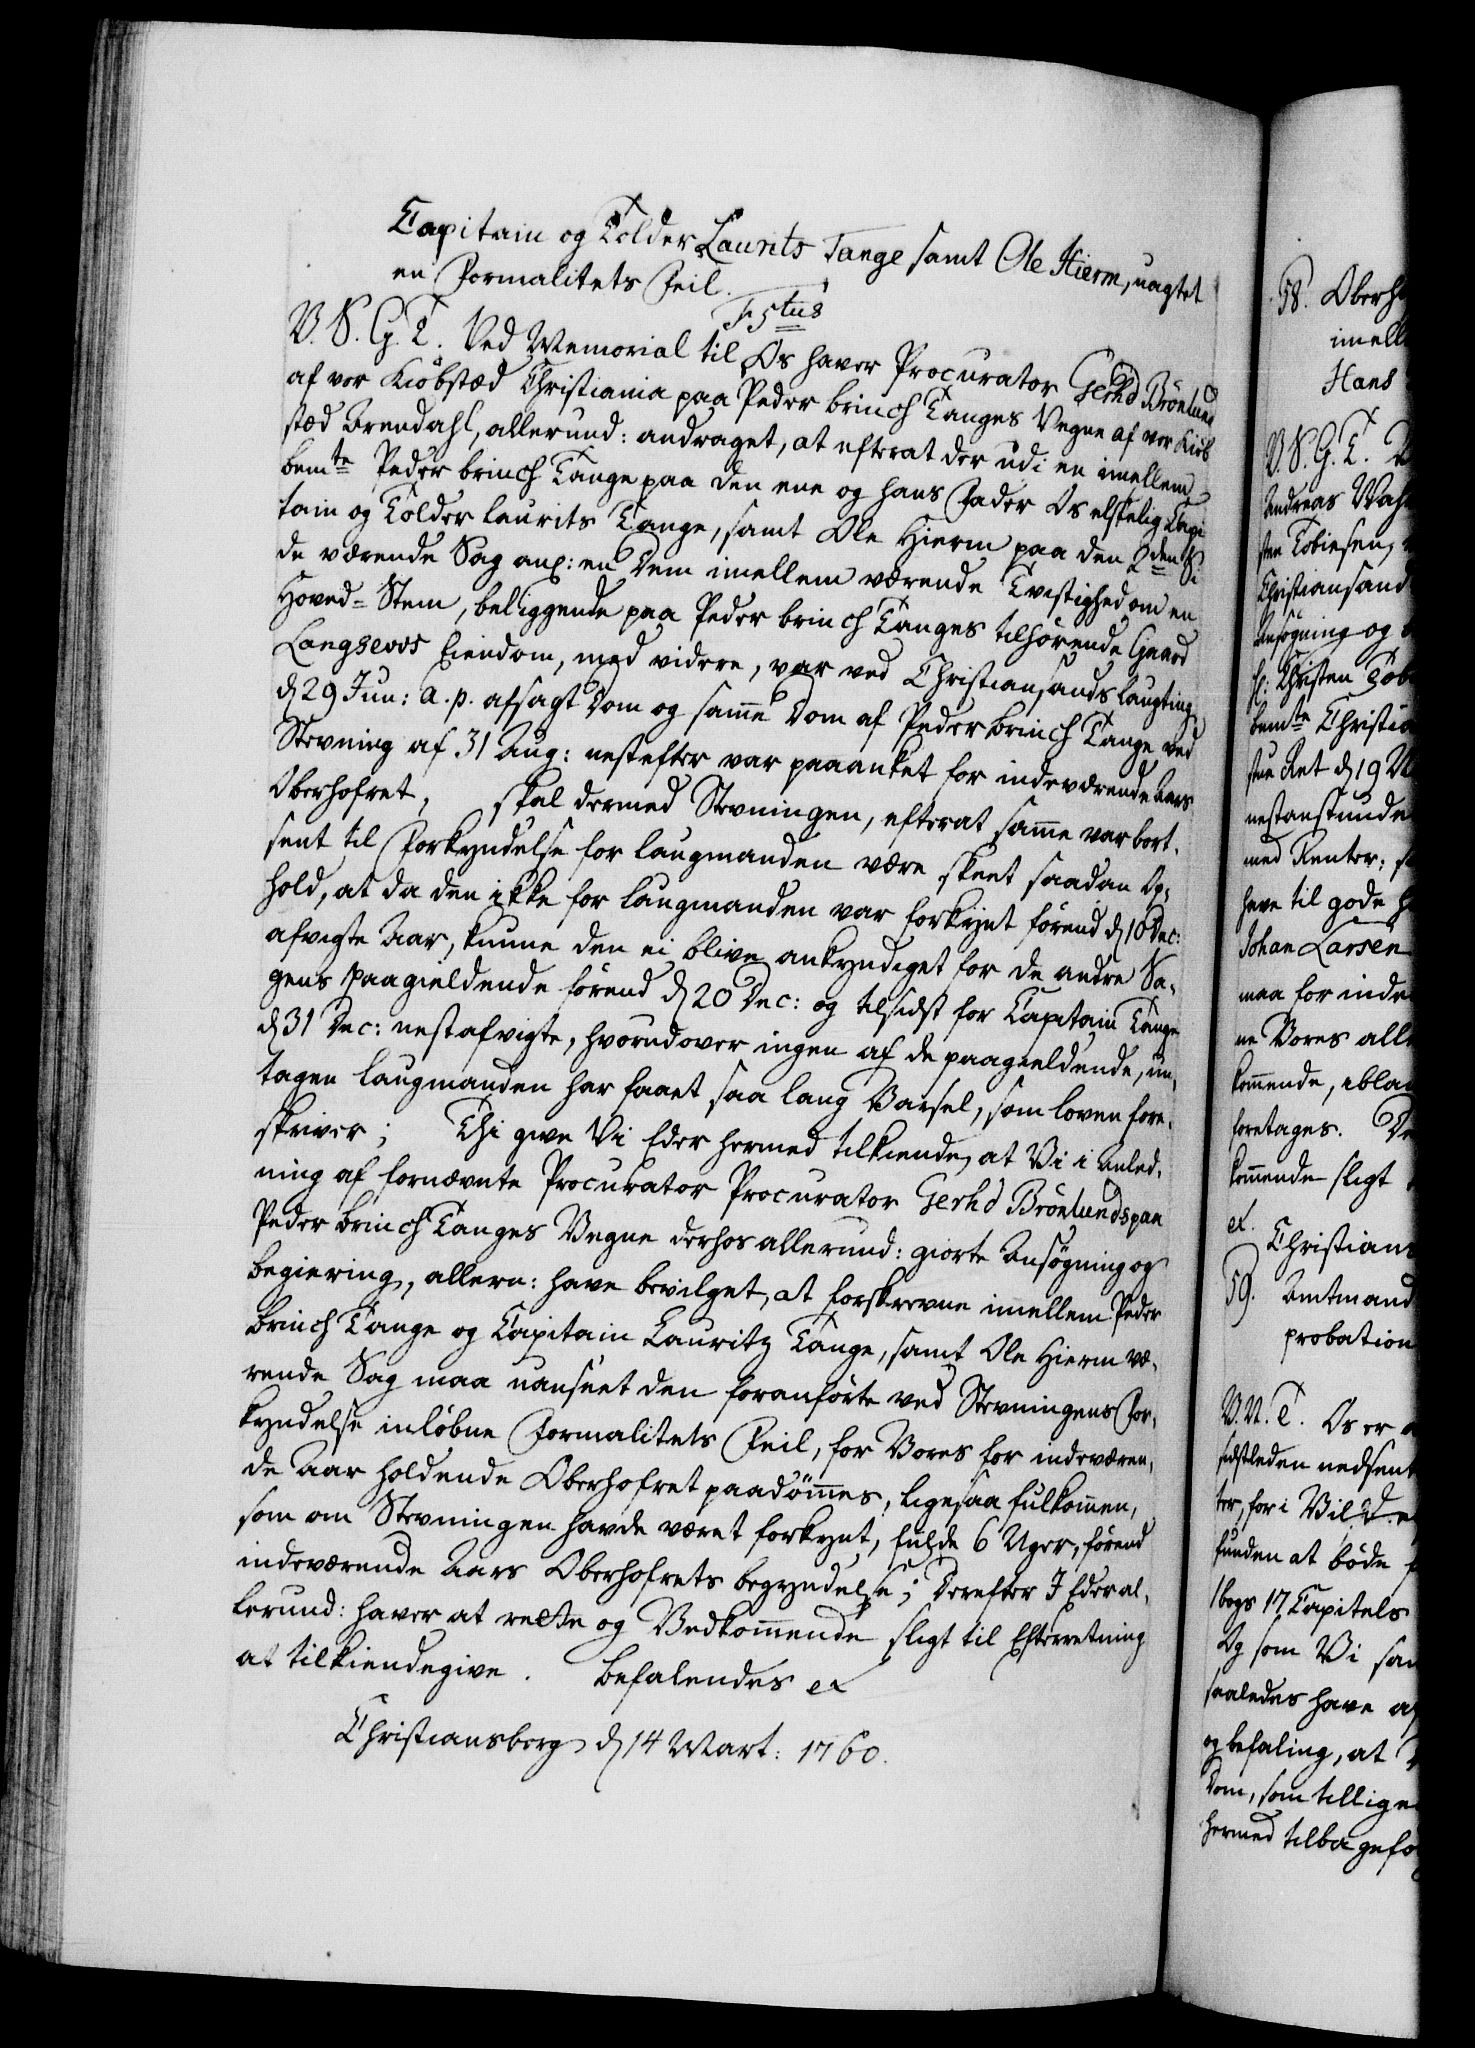 Capitain og Tolder Laurits Tange samt Ole Hierm, uagtet
en Formalitets Feil.
F. 5tus
V. S. G. T. Ved Memorial til Os haver Procurator Gerhd Brönlund
af vor Kiöbstæd Christiania paa Peder brinch Tanges Vegne af vor Kiöb
stæd Arendahl, allerund: andraget, at efterat der udi en imellem
bemte Peder brinch Tange paa den ene og hans Fader Os elskelig Capi
tain og Tolder Laurits Tange, samt Ole Hierm paa den 2den Si
de værende Sag anl: en Dem imellem værende Tvistighed om en
Hoved-Stem, beliggende paa Peder brinch Tanges tilhörende Gaard
Langsevos Eiendom, med videre, var ved Christiansands Laugting
d 29 Jun: a. p. afsagt Dom og samme Dom af Peder brinch Tange ved
Stevning af 31 Aug: nestefter var paaanket for indeværende Aars
Oberhofret, skal dermed Stevningen, efterat samme var bort-
sent til Forkyndelse for Laugmanden være skeet saadan Op-
hold, at da den ikke for Laugmanden var forkynt förend d 10 Dec:
afvigte Aar, kunne den ei blive ankyndiget for de andre Sa-
gens paagieldende förend d 20 Dec: og tilsidst for Capitain Tange
d 31 Dec: nestafvigte, hvorudover ingen af de paagieldende, un-
tagen Laugmanden har faaet saa lang Varsel, som Loven fore-
skriver; Thi give Vi Eder hermed tilkiende, at Vi i Anled-
ning af fornævnte Procurator Procurator Gerhd Brönlunds paa
Peder brinch Tanges Vegne derhos allerund: giorte Ansögning og
begiering, allern: have bevilget, at forskrevne imellem Peder
brinch Tange og Capitain Lauritz Tange, samt Ole Hierm væ-
rende Sag maa uanseet den foranförte ved Stevningens For-
kyndelse inlöbne Formalitets Feil, for Vores for indeværen-
de Aar holdende Oberhofret paadömmes, ligesaa fulkommen,
som om Stevningen havde været forkynt, fulde 6 Uger, förend
indeværende Aars Oberhofrets begyndelse; Derefter I Eder al-
lerund: haver at rette og Vedkommende sligt til Efterretning
at tilkiendegive. Befalendes etc
Christiansborg d 14 Mart: 1760.
58. Oberh
imell
Hans
V. S. G. T.
Andreas Wah
sten Tobiesen,
Christiansand
Ansögning og
sl: Christen Tob
bemte Christia
stue Ret d 19
nestanstunde
med Renter;
have til gode
Johan Larsen
maa for inde
ne Vores all
kommende,
foretages.
kommende sligt
etc.
Christians
59. Amtmand
probation
V. V. T. Os er
sidstleden nedsent
ter, for i
funden at böde
1 bogs 17 Capitels
Og som Vi
saaledes have
og befaling, at
Dom, som tillige
hermed tilbagefö